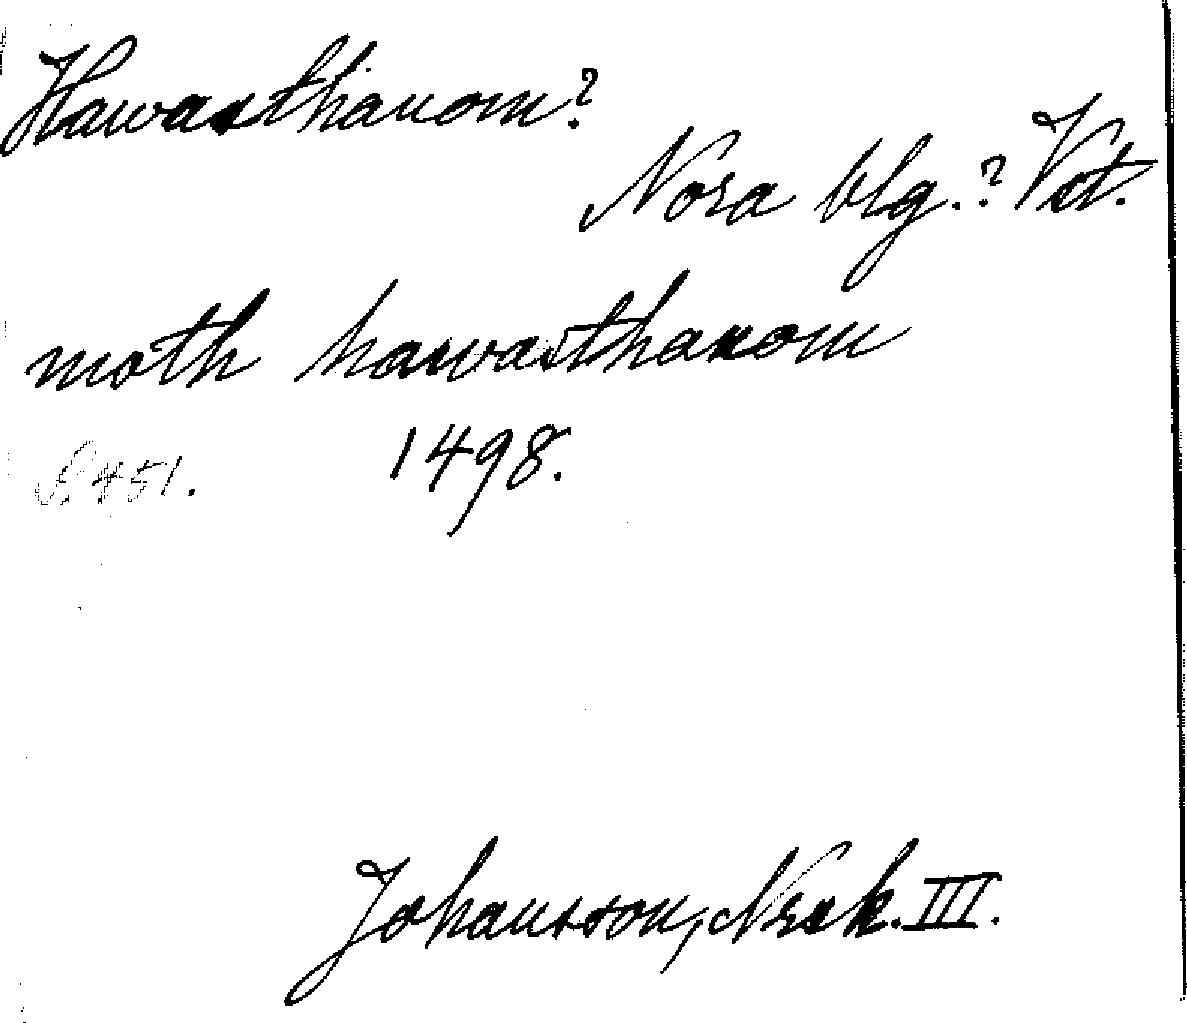 Hawasthanom?
Nora blg.? Vst.
moth hawasthanom
1498.
S. 451.
Johansson, Nrsk. III.